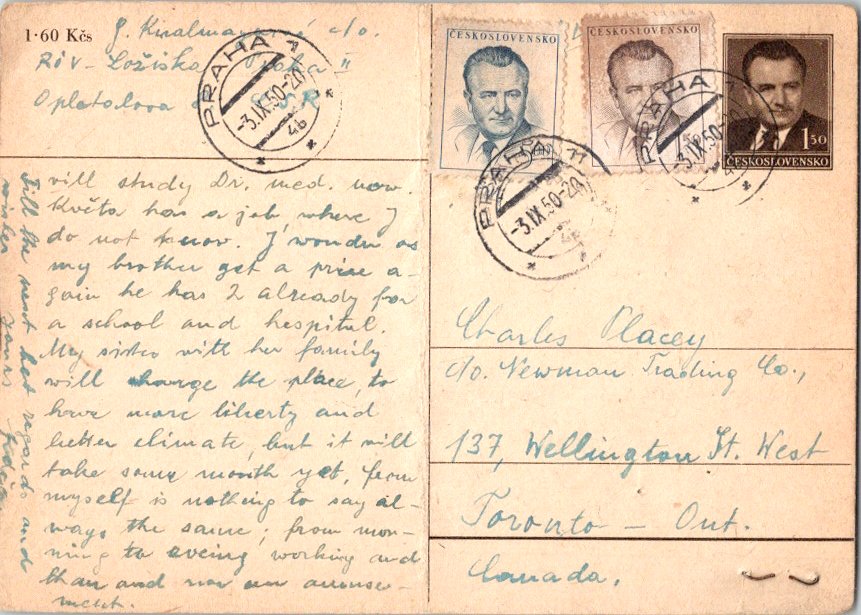 1·60 Kčs
c/o.
RIV - Ložiska Praha II
Opletalova ČSR
ČESKOSLOVENSKO
ČESKOSLOVENSKO
1 50
ČESKOSLOVENSKO
PRAHA 1
-3.IX.50-20
4b
PRAHA 1
-3.IX.50-20
4b
PRAHA 1
-3.IX.50-20
4b
will study Dr. med. now.
Květa has a job, where I
do not know. I wonder as
my brother get a prise a-
gain he has 2 already for
a school and hospital.
My sister with her family
will change the place, to
have more liberty and
better climate, but it will
take some month yet, from
myself is nothing to say al-
ways the same; from mor-
ning to eveing working and
than and now an amuse-
ment.
Till the next best regards and
wishes Yours
Charles Placey
c/o. Newman Trading Co.,
137, Wellington St. West
Toronto - Ont.
Canada.